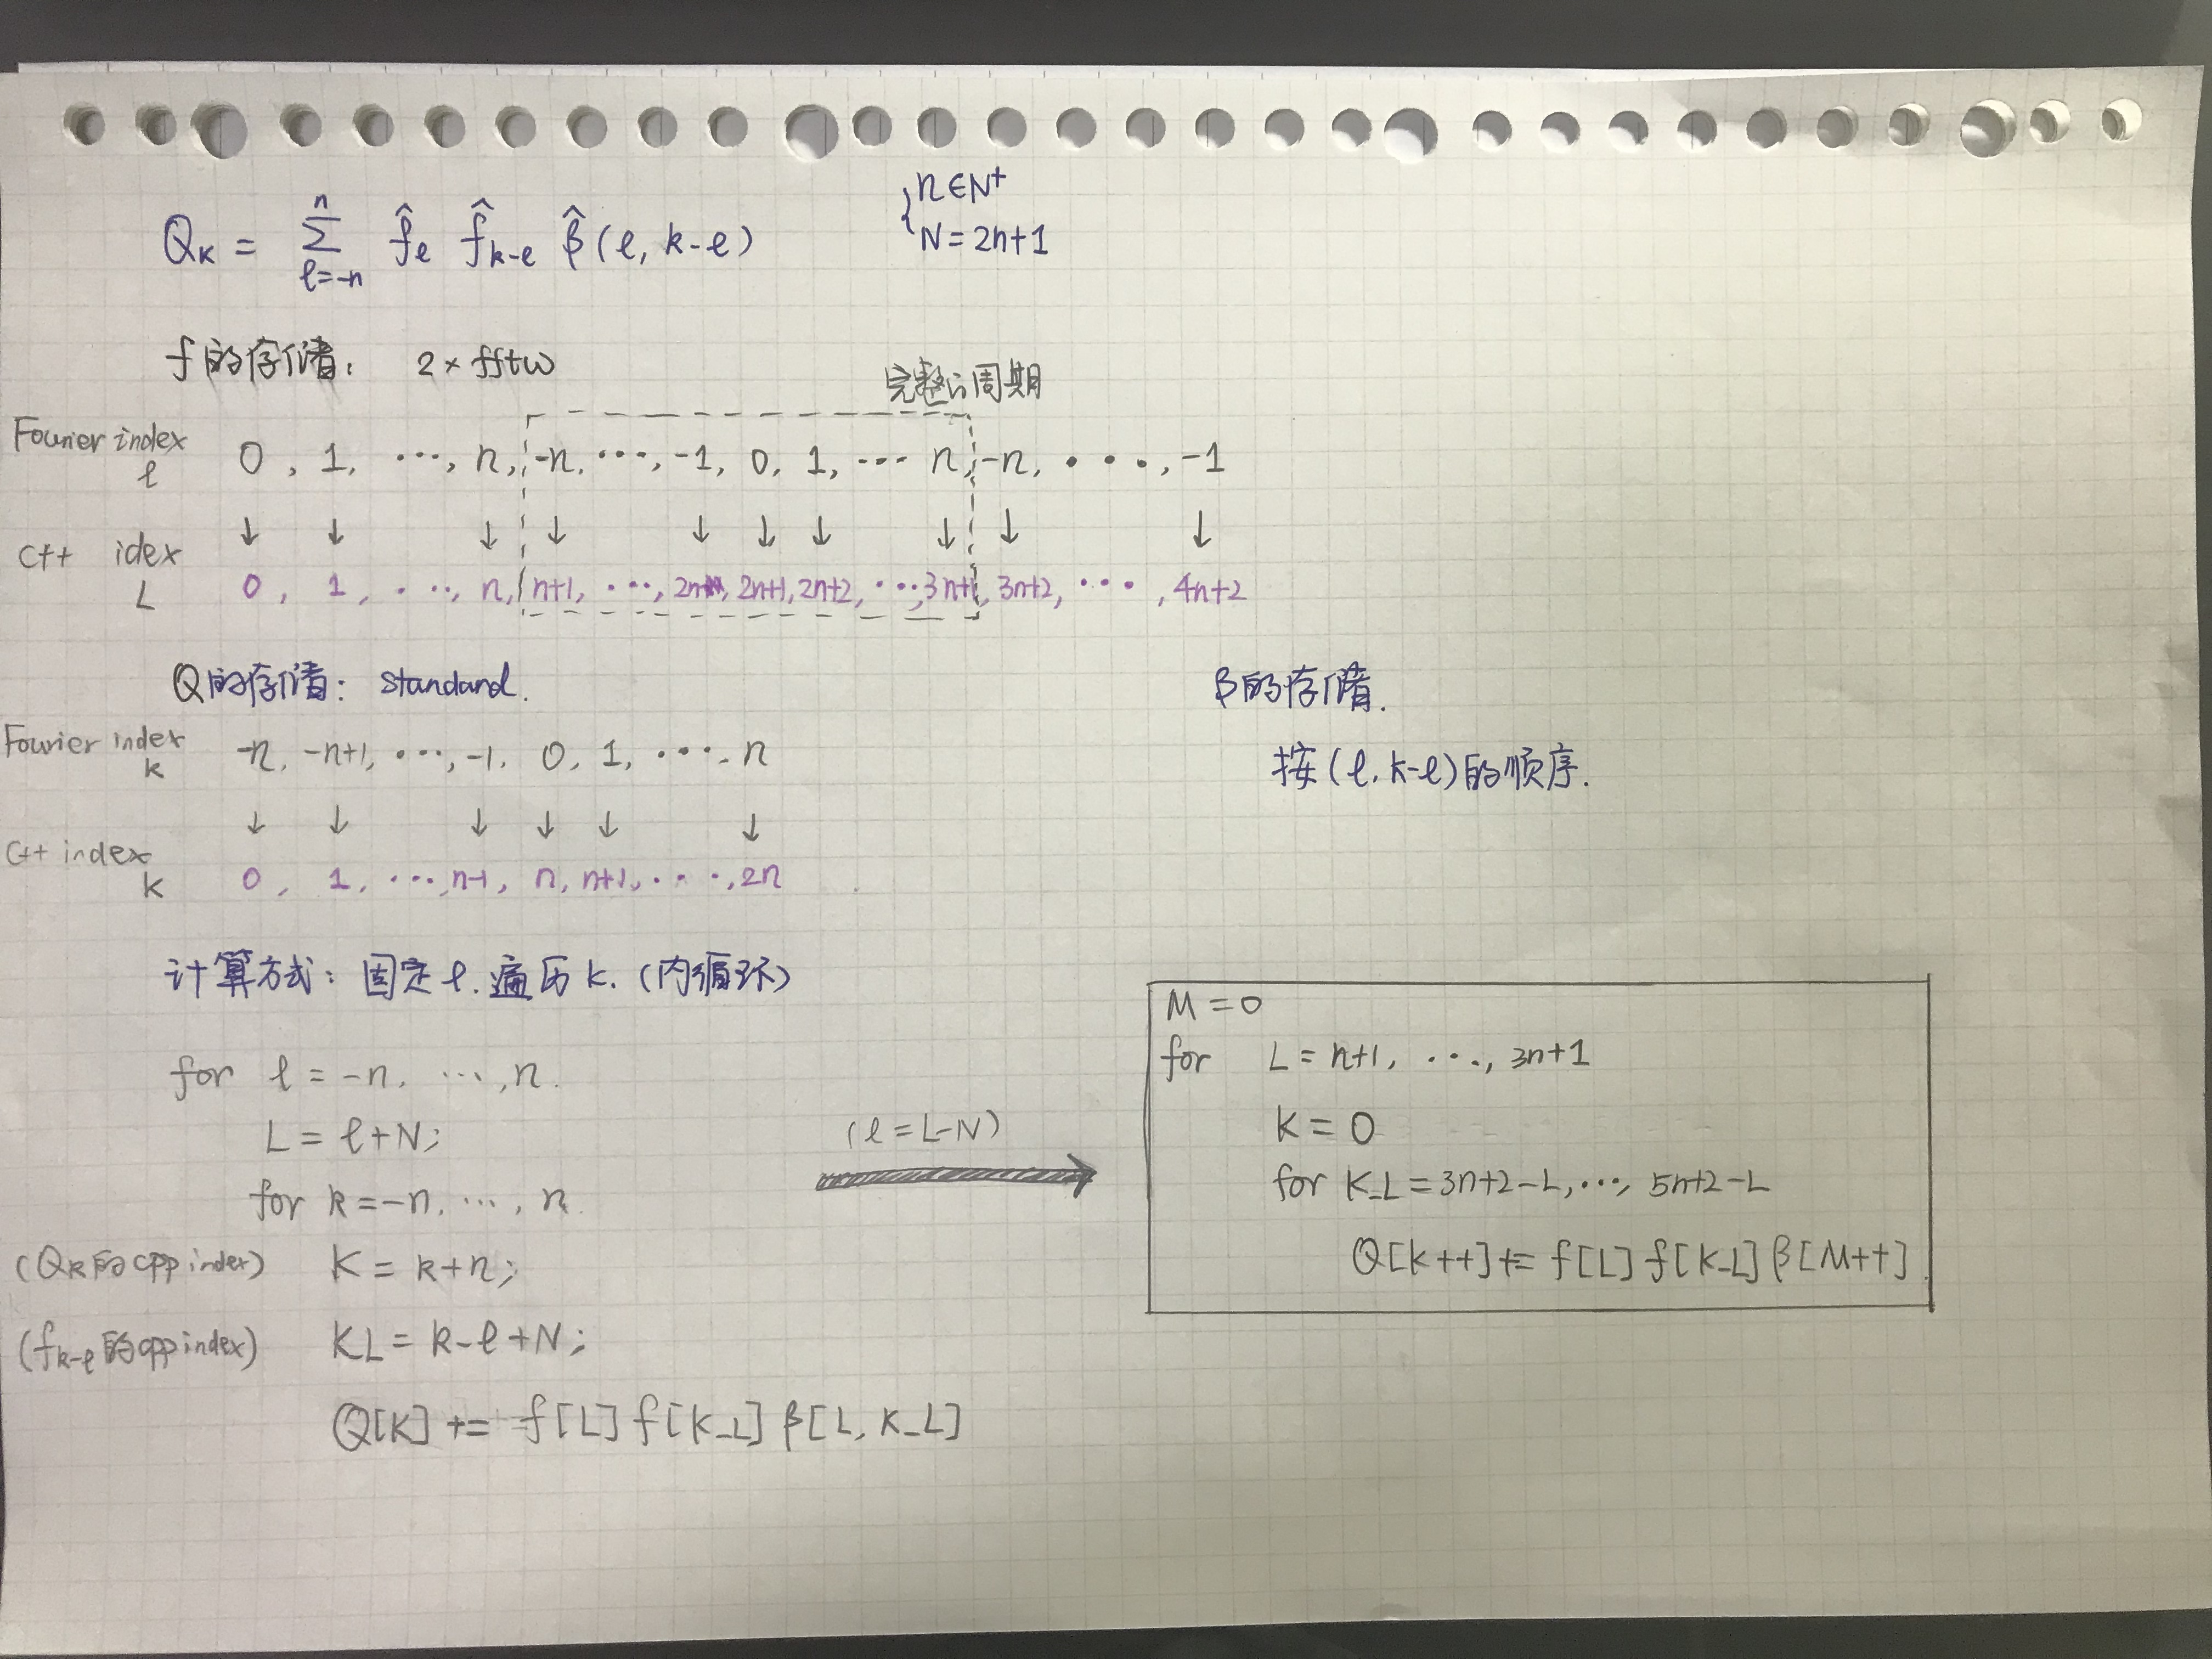 Q_k = Σ_{ℓ=-n}^{n} f̂_ℓ f̂_{k-ℓ} β̂(ℓ, k-ℓ)
{ n∈N⁺
N=2n+1
f的存储: 2×fftw
完整的周期
Fourier index ℓ 0, 1, ···, n, -n, ···, -1, 0, 1, ··· n, -n, ···, -1
↓ ↓ ↓ ↓ ↓ ↓ ↓ ↓ ↓ ↓
C++ idex L 0, 1, ···, n, n+1, ···, 2n, 2n+1, 2n+2, ···, 3n+1, 3n+2, ···, 4n+2
Q的存储: standard.
Fourier index k -n, -n+1, ···, -1, 0, 1, ···, n
↓ ↓ ↓ ↓ ↓ ↓
C++ index K 0, 1, ···, n-1, n, n+1, ···, 2n
β的存储.
按(ℓ, k-ℓ)的顺序.
计算方式: 固定ℓ. 遍历k. (内循环)
for ℓ = -n, ···, n.
L = ℓ+N;
for k=-n, ···, n.
(Q_k的cpp index) K = k+n;
(f_{k-ℓ}的cpp index) K_L = k-ℓ+N;
Q[K] += f[L] f[K_L] β[L, K_L]
(ℓ=L-N)
M=0
for L=n+1, ···, 3n+1
K=0
for K_L=3n+2-L, ···, 5n+2-L
Q[K++] += f[L] f[K_L] β[M++]